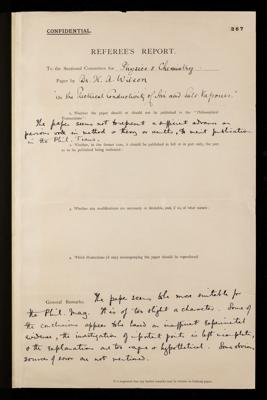 CONFIDENTIAL.
267
REFEREE'S REPORT.
To the Sectional Committee for Physics & Chemistry
Paper by Dr. H. A. Wilson
"On the Electrical Conductivity of Air and Salt Vapours."
1. Whether the paper should or should not be published in the "Philosophical
Transactions"
The paper seems not to represent a sufficient advance on
previous work in method or theory or results, to merit publication
in the Phil. Trans.
2. Whether, in the former case, it should be published in full or in part only, the part
so to be published being indicated:
3. Whether any modifications are necessary or desirable, and, if so, of what nature:
4. Which illustrations (if any) accompanying the paper should be reproduced
General Remarks. The paper seems to be more suitable for
the Phil. Mag. It is of too slight a character. Some of
the conclusions appear to be based on insufficient experimental
evidence, the investigation of important points is left incomplete,
& the explanations are too vague & hypothetical. Some obvious
sources of error are not mentioned.
It is requested that any further remarks may be written on